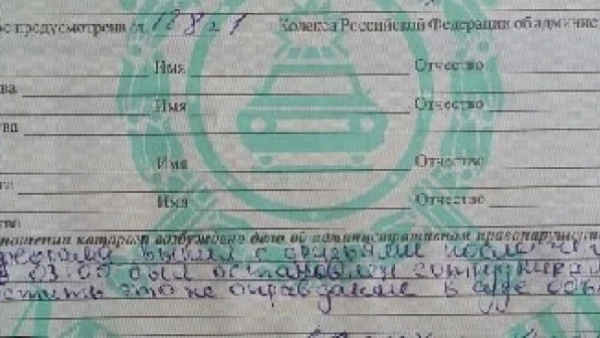 предусмотрена ст. 12 8 ч 1 Кодекса Российской Федерации об админис
Имя Отчество
ва
Имя Отчество
ва
Имя Отчество
Имя Отчество
ношении которого возбуждено дело об административном правонарушении
выпил с друзьями после чего
03:05 был остановлен сотрудника
это не оправдание в суде